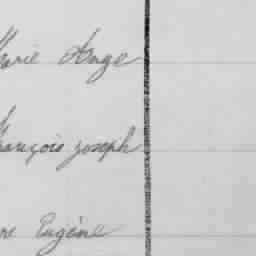 Marie Ange
François Joseph
Eugène